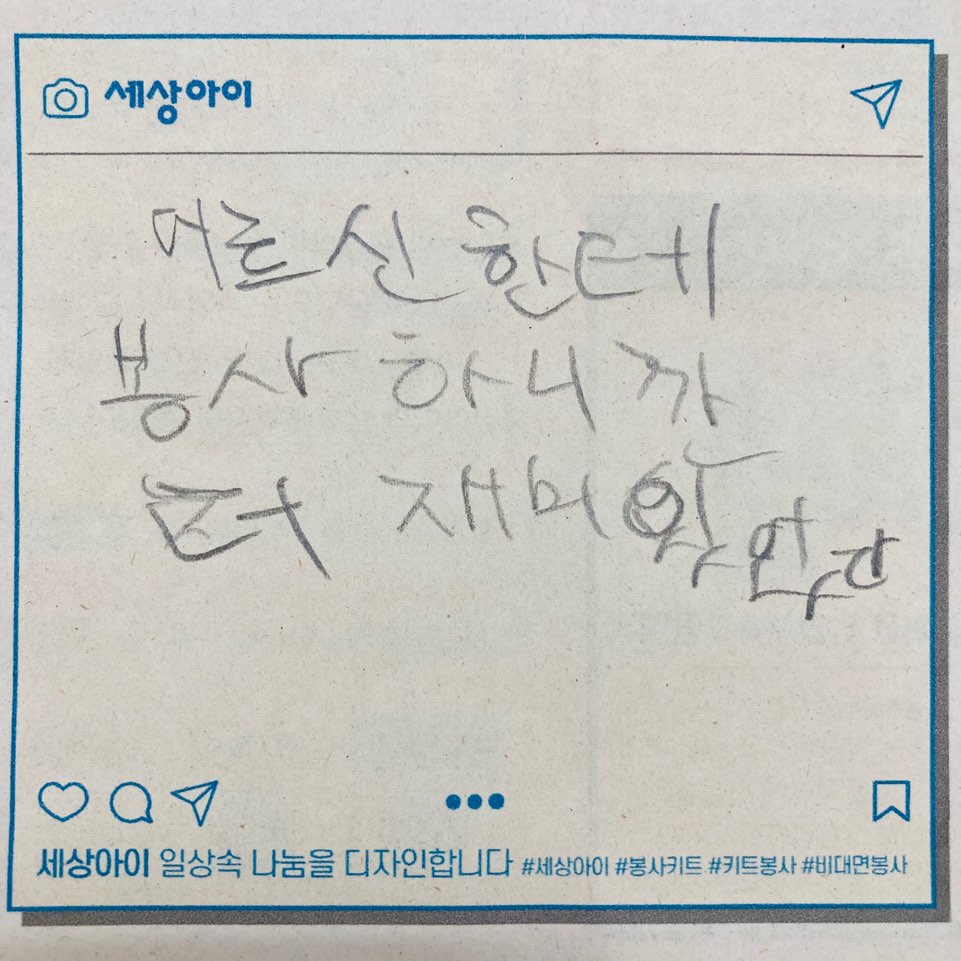 세상아이
어르신한테
봉사 하니까
더 재미
세상아이 일상속 나눔을 디자인합니다 #세상아이 #봉사키트 #키트봉사 #비대면봉사